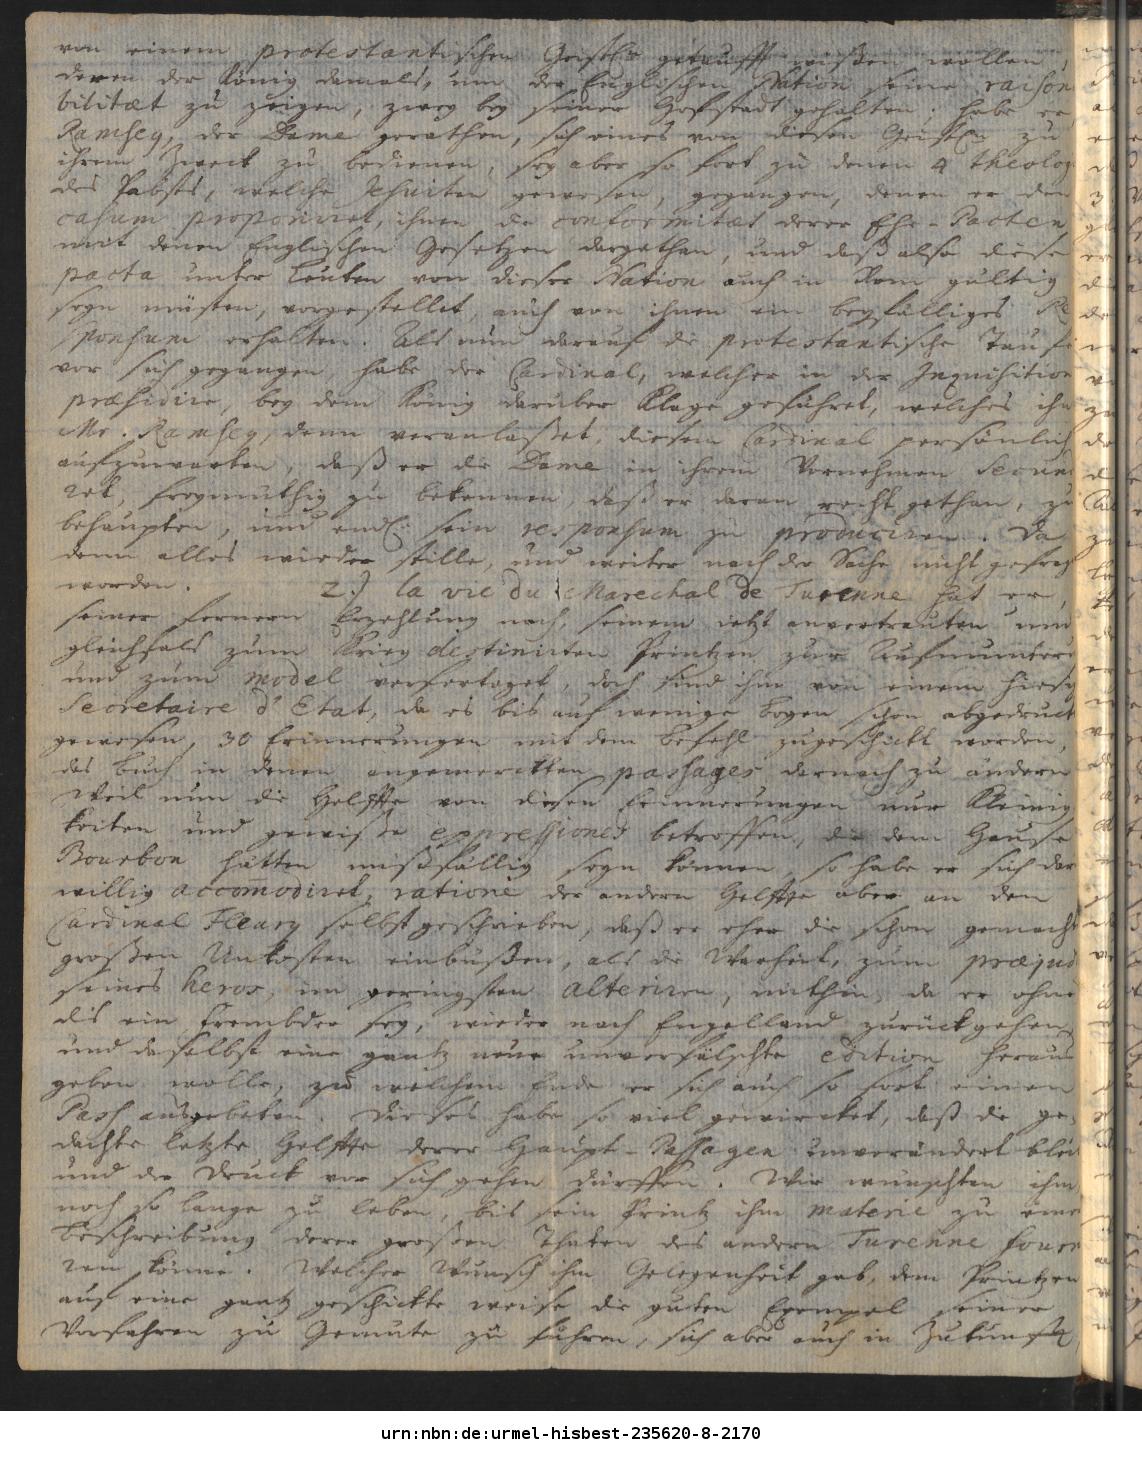 von einem protestantischen Geistl. getaufft wißen wollen,
deren der König damals, um der Englischen Nation seine raison
bilitæt zu zeigen, zwey bey seiner Hoffstadt gehalten; habe er
Ramsey, der Dame gerathen, sich eines von diesen Geistl. zu
ihrem Zweck zu bedienen, sey aber so fort zu denen 4 theolog
des Pabsts, welche Jesuiten gewesen, gegangen, denen er den
casum proponiret, ihnen die conformitæt derer Ehe-Pacten
mit denen Englischen Gesetzen dargethan, und daß also diese
pacta unter Leuten von dieser Nation auch in Rom gültig
seyn müsten, vorgestellet, auch von ihnen ein beyfälliges Re
sponsum erhalten. Als nun darauf die protestantische Tauffe
vor sich gegangen habe der Cardinal, welcher in der Inquisition
præsidire, bey dem König darüber Klage geführet, welches ihn
Mr. Ramsey, denn veranlaßet, diesem Cardinal persönlich
aufzuwarten, daß er die Dame in ihrem Vornehmen secundi
ret, freymüthig zu bekennen, daß er daran recht gethan, zu
behaupten, und endl. sein responsum zu produciren. Da
denn alles wieder stille, und weiter nach der Sache nicht gefragt
worden. 2.) la vie du Marechal de Turenne hat er,
seiner fernern Erzehlung nach, seinem jetzt anvertrauten und
gleichfals zum Krieg destinirten Printzen zur Aufmunter
und zum model verfertiget, doch sind ihm von einem hiesig
Secretaire d'Etat, da es bis auf wenige Bogen schon abgedruckt
gewesen, 30 Erinnerungen mit dem Befehl zugeschickt worden,
das Buch in denen angemerckten passages darnach zu ändern
Weil nun die Helffte von diesen Erinnerungen nur Kleinig
keiten und gewiße expressiones betroffen, die dem Hause
Bourbon hätten mißfällig seyn können, so habe er sich dar
willig accom̄odiret, ratione der andern Helffte aber an den
Cardinal Fleury selbst geschrieben, daß er eher die schon gemacht
großen Unkosten einbußen, als die Warheit, zum præjud
seines heros, im geringsten alteriren, mithin, da er ohne
dis ein Frembder sey, wieder nach Engelland zurückgehen
und daselbst eine gantz neue unverfälschte edition heraus
geben wolle, zu welchem Ende er sich auch so fort einen
Pass ausgebeten. Dieses habe so viel gewircket, daß die ge-
dachte letzte Helffte derer Haupt-Passagen unverändert bleib
und der Druck vor sich gehen dürffen. Wir wünschten ihm
noch so lange zu leben, bis sein Printz ihm materie zu eine
Beschreibung derer großen Thaten des andern Turenne fourn
ren könne. Welcher Wunsch ihm Gelegenheit gab, dem Printzen
auf eine gantz geschickte weise die guten Exempel seiner
Vorfahren zu Gemüte zu führen, sich aber auch in Zukunfft
urn:nbn:de:urmel-hisbest-235620-8-2170